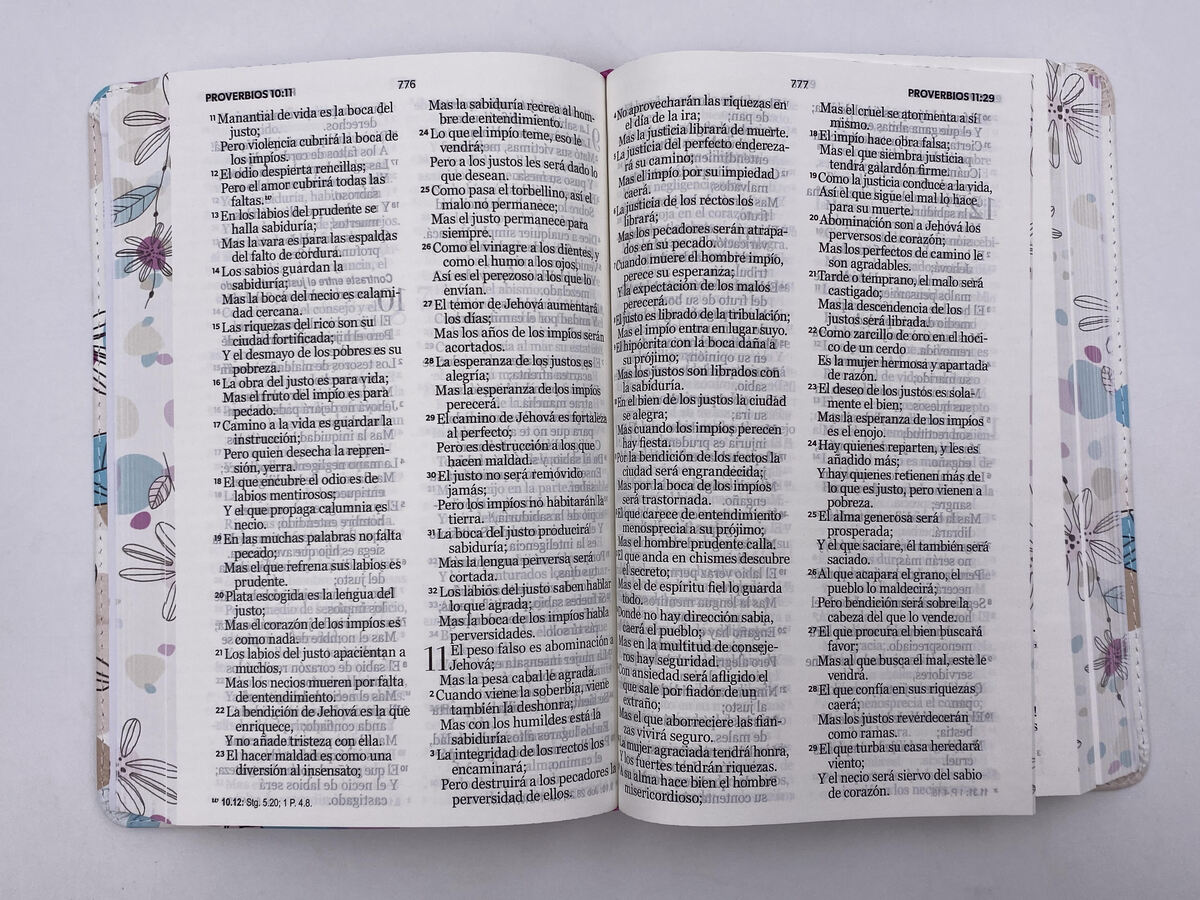 PROVERBIOS 10:11
776
11 Manantial de vida es la boca del
justo;
Pero violencia cubrirá la boca de
los impíos.
12 El odio despierta rencillas;
Pero el amor cubrirá todas las
faltas.
13 En los labios del prudente se
halla sabiduría;
Mas la vara es para las espaldas
del falto de cordura.
14 Los sabios guardan la
sabiduría;
Mas la boca del necio es calami-
dad cercana.
15 Las riquezas del rico son su
ciudad fortificada;
Y el desmayo de los pobres es su
pobreza.
16 La obra del justo es para vida;
Mas el fruto del impío es para
pecado.
17 Camino a la vida es guardar la
instrucción;
Pero quien desecha la repren-
sión, yerra.
18 El que encubre el odio es de
labios mentirosos;
Y el que propaga calumnia es
necio.
19 En las muchas palabras no falta
pecado;
Mas el que refrena sus labios es
prudente.
20 Plata escogida es la lengua del
justo;
Mas el corazón de los impíos es
como nada.
21 Los labios del justo apacientan a
muchos,
Mas los necios mueren por falta
de entendimiento.
22 La bendición de Jehová es la que
enriquece,
Y no añade tristeza con ella.
23 El hacer maldad es como una
diversión al insensato;
10.12: Stg. 5.20; 1 P. 4.8.
Mas la sabiduría recrea al hom-
bre de entendimiento.
24 Lo que el impío teme, eso le
vendrá;
Pero a los justos les será dado lo
que desean.
25 Como pasa el torbellino, así el
malo no permanece;
Mas el justo permanece para
siempre.
26 Como el vinagre a los dientes, y
como el humo a los ojos,
Así es el perezoso a los que lo
envían.
27 El temor de Jehová aumentará
los días;
Mas los años de los impíos serán
acortados.
28 La esperanza de los justos es
alegría;
Mas la esperanza de los impíos
perecerá.
29 El camino de Jehová es fortaleza
al perfecto;
Pero es destrucción a los que
hacen maldad.
30 El justo no será removido
jamás;
Pero los impíos no habitarán la
tierra.
31 La boca del justo producirá
sabiduría;
Mas la lengua perversa será
cortada.
32 Los labios del justo saben hablar
lo que agrada;
Mas la boca de los impíos habla
perversidades.
11 El peso falso es abominación a
Jehová;
Mas la pesa cabal le agrada.
2 Cuando viene la soberbia, viene
también la deshonra;
Mas con los humildes está la
sabiduría.
3 La integridad de los rectos los
encaminará;
Pero destruirá a los pecadores la
perversidad de ellos.
777
PROVERBIOS 11:29
No aprovecharán las riquezas en
el día de la ira;
Mas la justicia librará de muerte.
La justicia del perfecto endereza-
rá su camino;
Mas el impío por su impiedad
caerá.
La justicia de los rectos los
librará;
Mas los pecadores serán atrapa-
dos en su pecado.
Cuando muere el hombre impío,
perece su esperanza;
Y la expectación de los malos
perecerá.
El justo es librado de la tribulación;
Mas el impío entra en lugar suyo.
El hipócrita con la boca daña a
su prójimo;
Mas los justos son librados con
la sabiduría.
En el bien de los justos la ciudad
se alegra;
Mas cuando los impíos perecen
hay fiesta.
Por la bendición de los rectos la
ciudad será engrandecida;
Mas por la boca de los impíos
será trastornada.
El que carece de entendimiento
menosprecia a su prójimo;
Mas el hombre prudente calla.
El que anda en chismes descubre
el secreto;
Mas el de espíritu fiel lo guarda
todo.
Donde no hay dirección sabia,
caerá el pueblo;
Mas en la multitud de conseje-
ros hay seguridad.
Con ansiedad será afligido el
que sale por fiador de un
extraño;
Mas el que aborreciere las fian-
zas vivirá seguro.
La mujer agraciada tendrá honra,
Y los fuertes tendrán riquezas.
A su alma hace bien el hombre
misericordioso;
Mas el cruel se atormenta a sí
mismo.
18 El impío hace obra falsa;
Mas el que siembra justicia
tendrá galardón firme.
19 Como la justicia conduce a la vida,
Así el que sigue el mal lo hace
para su muerte.
20 Abominación son a Jehová los
perversos de corazón;
Mas los perfectos de camino le
son agradables.
21 Tarde o temprano, el malo será
castigado;
Mas la descendencia de los
justos será librada.
22 Como zarcillo de oro en el hoci-
co de un cerdo
Es la mujer hermosa y apartada
de razón.
23 El deseo de los justos es sola-
mente el bien;
Mas la esperanza de los impíos
es el enojo.
24 Hay quienes reparten, y les es
añadido más;
Y hay quienes retienen más de
lo que es justo, pero vienen a
pobreza.
25 El alma generosa será
prosperada;
Y el que saciare, él también será
saciado.
26 Al que acapara el grano, el
pueblo lo maldecirá;
Pero bendición será sobre la
cabeza del que lo vende.
27 El que procura el bien buscará
favor;
Mas al que busca el mal, este le
vendrá.
28 El que confía en sus riquezas
caerá;
Mas los justos reverdecerán
como ramas.
29 El que turba su casa heredará
viento;
Y el necio será siervo del sabio
de corazón.